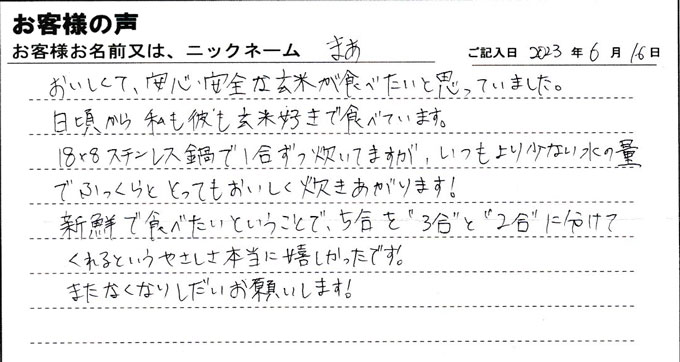 お客様の声
お客様お名前又は、ニックネーム まあ ご記入日 2023年6月16日
おいしくて、安心・安全な玄米が食べたいと思っていました。
日頃から私も彼も玄米好きで食べています。
18×8ステンレス鍋で1合ずつ炊いてますが、いつもより少ない水の量
でふっくらととってもおいしく炊きあがります!
新鮮で食べたいということで、5合を"3合"と"2合"に分けて
くれるというやさしさ本当に嬉しかったです。
またなくなりしだいお願いします!